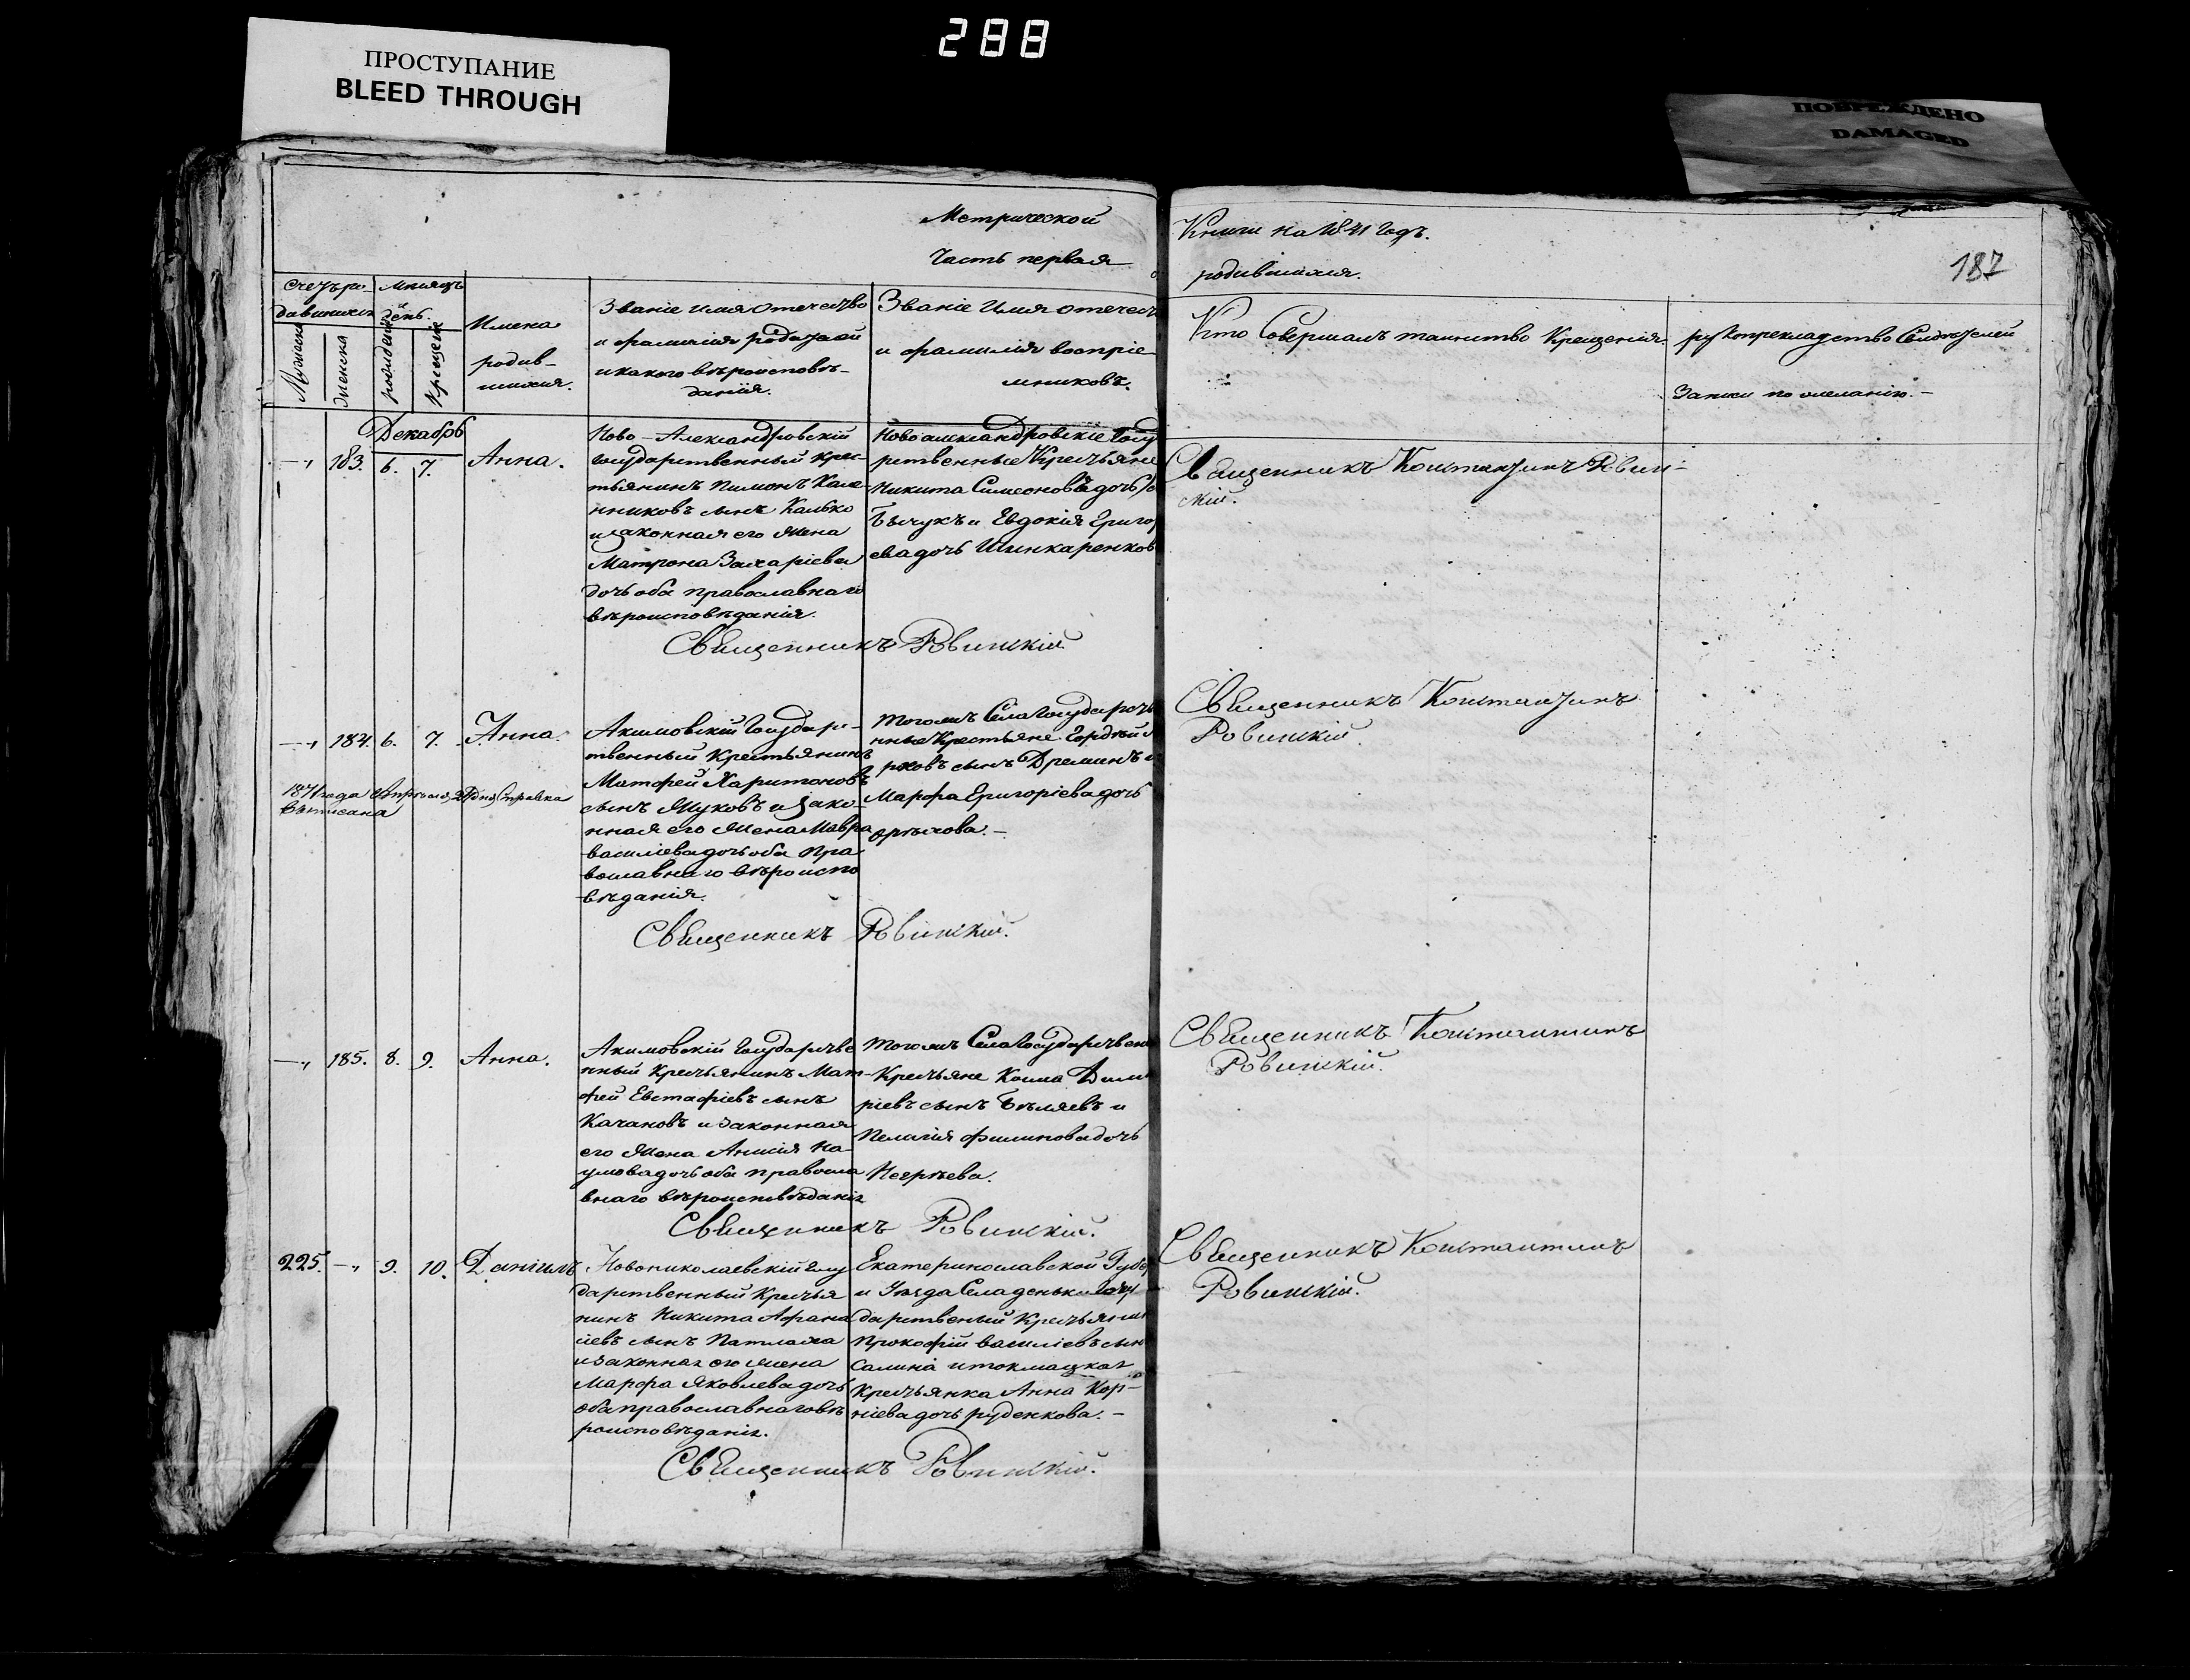 288
ПРОСТУПАНИЕ
BLEED THROUGH
ПОВРЕЖДЕНО
DAMAGED
Метрической
Книги на 1841 годъ.
Часть первая
о
родившихся.
187
Счетъ ро-
дившихся
Мѣсяцъ
день.
Мужеска
Женска
рожденія
Крещенія
Имена
родив-
шихся.
Званіе имя отечество
и фамилія родителей
и какого вѣроисповѣ-
данія.
Званіе Имя отечест
и фамилія воспріе-
мниковъ.
Кто Совершалъ таинство Крещенія.
Свидѣтелей
Записи по желанію. -
Декабрь
-„ 183. 6. 7. Анна.
Ново-Александровскій
Государственный крес-
тьянинъ Пимонъ Кале-
нниковъ сынъ Калько
и законная его жена
Матрона Захаріева
дочь оба православнаго
вѣроисповѣданія.
Новоалександровскіе Госу
рственные Крестьяне
Никита Симеоновъ
Бычукъ и Евдокія Григо
ева дочь Шинкаренков
Священникъ Константинъ Ровин-
скій.
Священникъ Ровинскій
-„ 184. 6. 7. Анна.
1871 года
Выписана
Акимовскій Государс-
твенный Крестьянинъ
Матфей Харитоновъ
сынъ Жуковъ и зако-
нная его жена Мавра
Василіева дочь оба пра
вославнаго вѣроиспо
вѣданія.
Тогожъ Села Государств
нные Крестьяне Гордѣй
ровъ сынъ Дреминъ и
Марфа Григоріева дочь
Орѣхова. -
Священникъ Константинъ
Ровинскій.
Священникъ Ровинскій.
-„ 185. 8. 9. Анна.
Акимовскій Государстве
нный Крестьянинъ Мат-
фей Евстафіевъ сынъ
Качановъ и законная
его жена Анисія На-
умова дочь оба правосла
внаго вѣроисповѣданія
Тогожъ Села Государствен
Крестьяне Косма Дими
ріевъ сынъ Бѣляевъ и
Пелагія Филипова дочь
Негрѣева.
Священникъ Константинъ
Ровинскій.
Священникъ Ровинскій.
225. -„ 9. 10. Даніилъ
Новониколаевскій госу
дарственный Крестья
нинъ Никита Афана
іевъ сынъ Патлаха
и законная его жена
Марфа Яковлева дочь
оба православнаго вѣ
роисповѣданія.
Екатеринославской Губер
и Уѣзда Села Госу
дарственый Крестьянин
Прокофій Василіевъ сын
Салина и токмацкая
Крестьянка Анна Кор-
ніева дочь руденкова. -
Священникъ Константинъ
Ровинскій.
Священникъ Ровинскій.